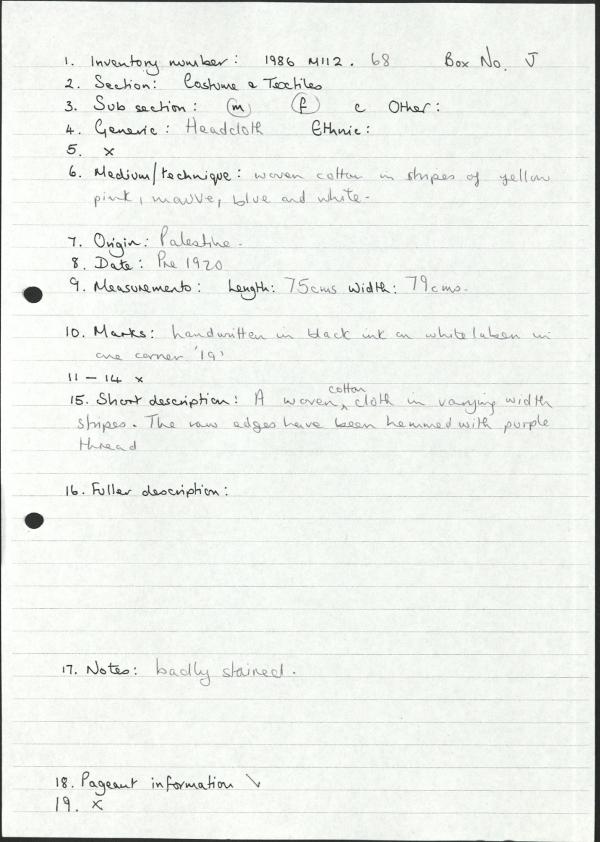 1. Inventory number: 1986 M112. 68 Box No. J
2. Section: Costume & Textiles
3. Sub section: m f c Other:
4. Generic: Headcloth Ethnic:
5. x
6. Medium/technique: woven cotton in stripes of yellow
pink, mauve, blue and white.
7. Origin: Palestine.
8. Date: Pre 1920
9. Measurements: Length: 75cms Width: 79cms.
10. Marks: handwritten in black ink on white in
one corner '19'
11 - 14 x
15. Short description: A woven cotton cloth in varying width
stripes. The raw edges have been hemmed with purple
thread
16. Fuller description:
17. Notes: badly stained.
18. Pageant information
19. x